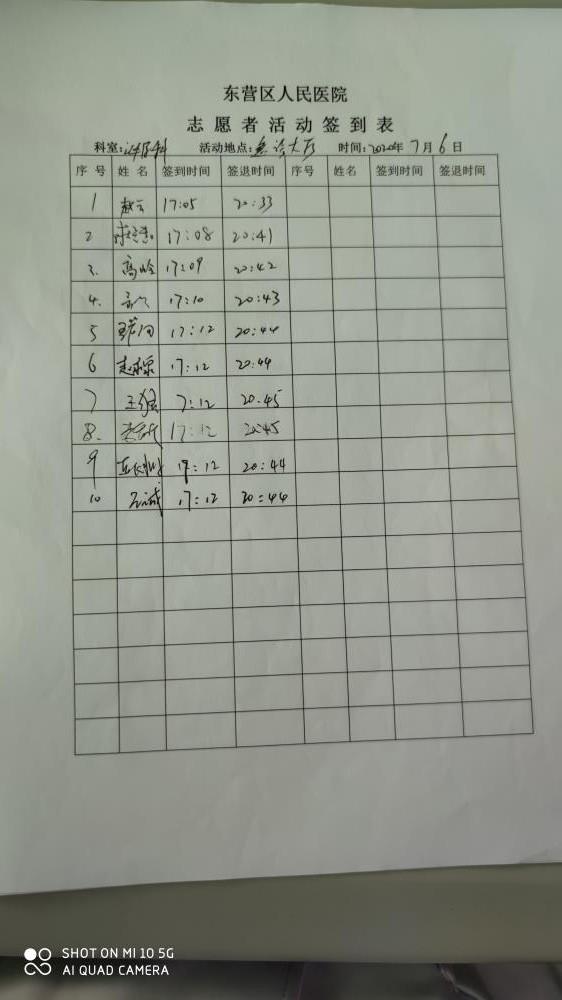 东营区人民医院
志愿者活动签到表
科室: 活动地点:急诊大厅 时间:2020年7月6日
序号 姓名 签到时间 签退时间 序号 姓名 签到时间 签退时间
1 赵云 17:05 20:33
2 17:08 20:41
3. 高岭 17:09 20:42
4. 17:10 20:43
5 17:12 20:44
6 17:12 20:44
7 王强 7:12 20:45
8. 17:12 20:45
9 17:12 20:44
10 17:12 20:44
SHOT ON MI 10 5G
AI QUAD CAMERA